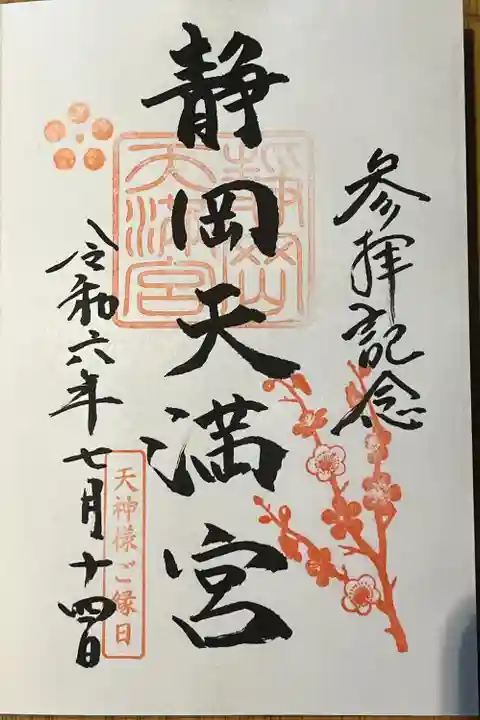 参拝記念
静岡天満宮
静岡
天満宮
令和六年七月十四日
天神様ご縁日